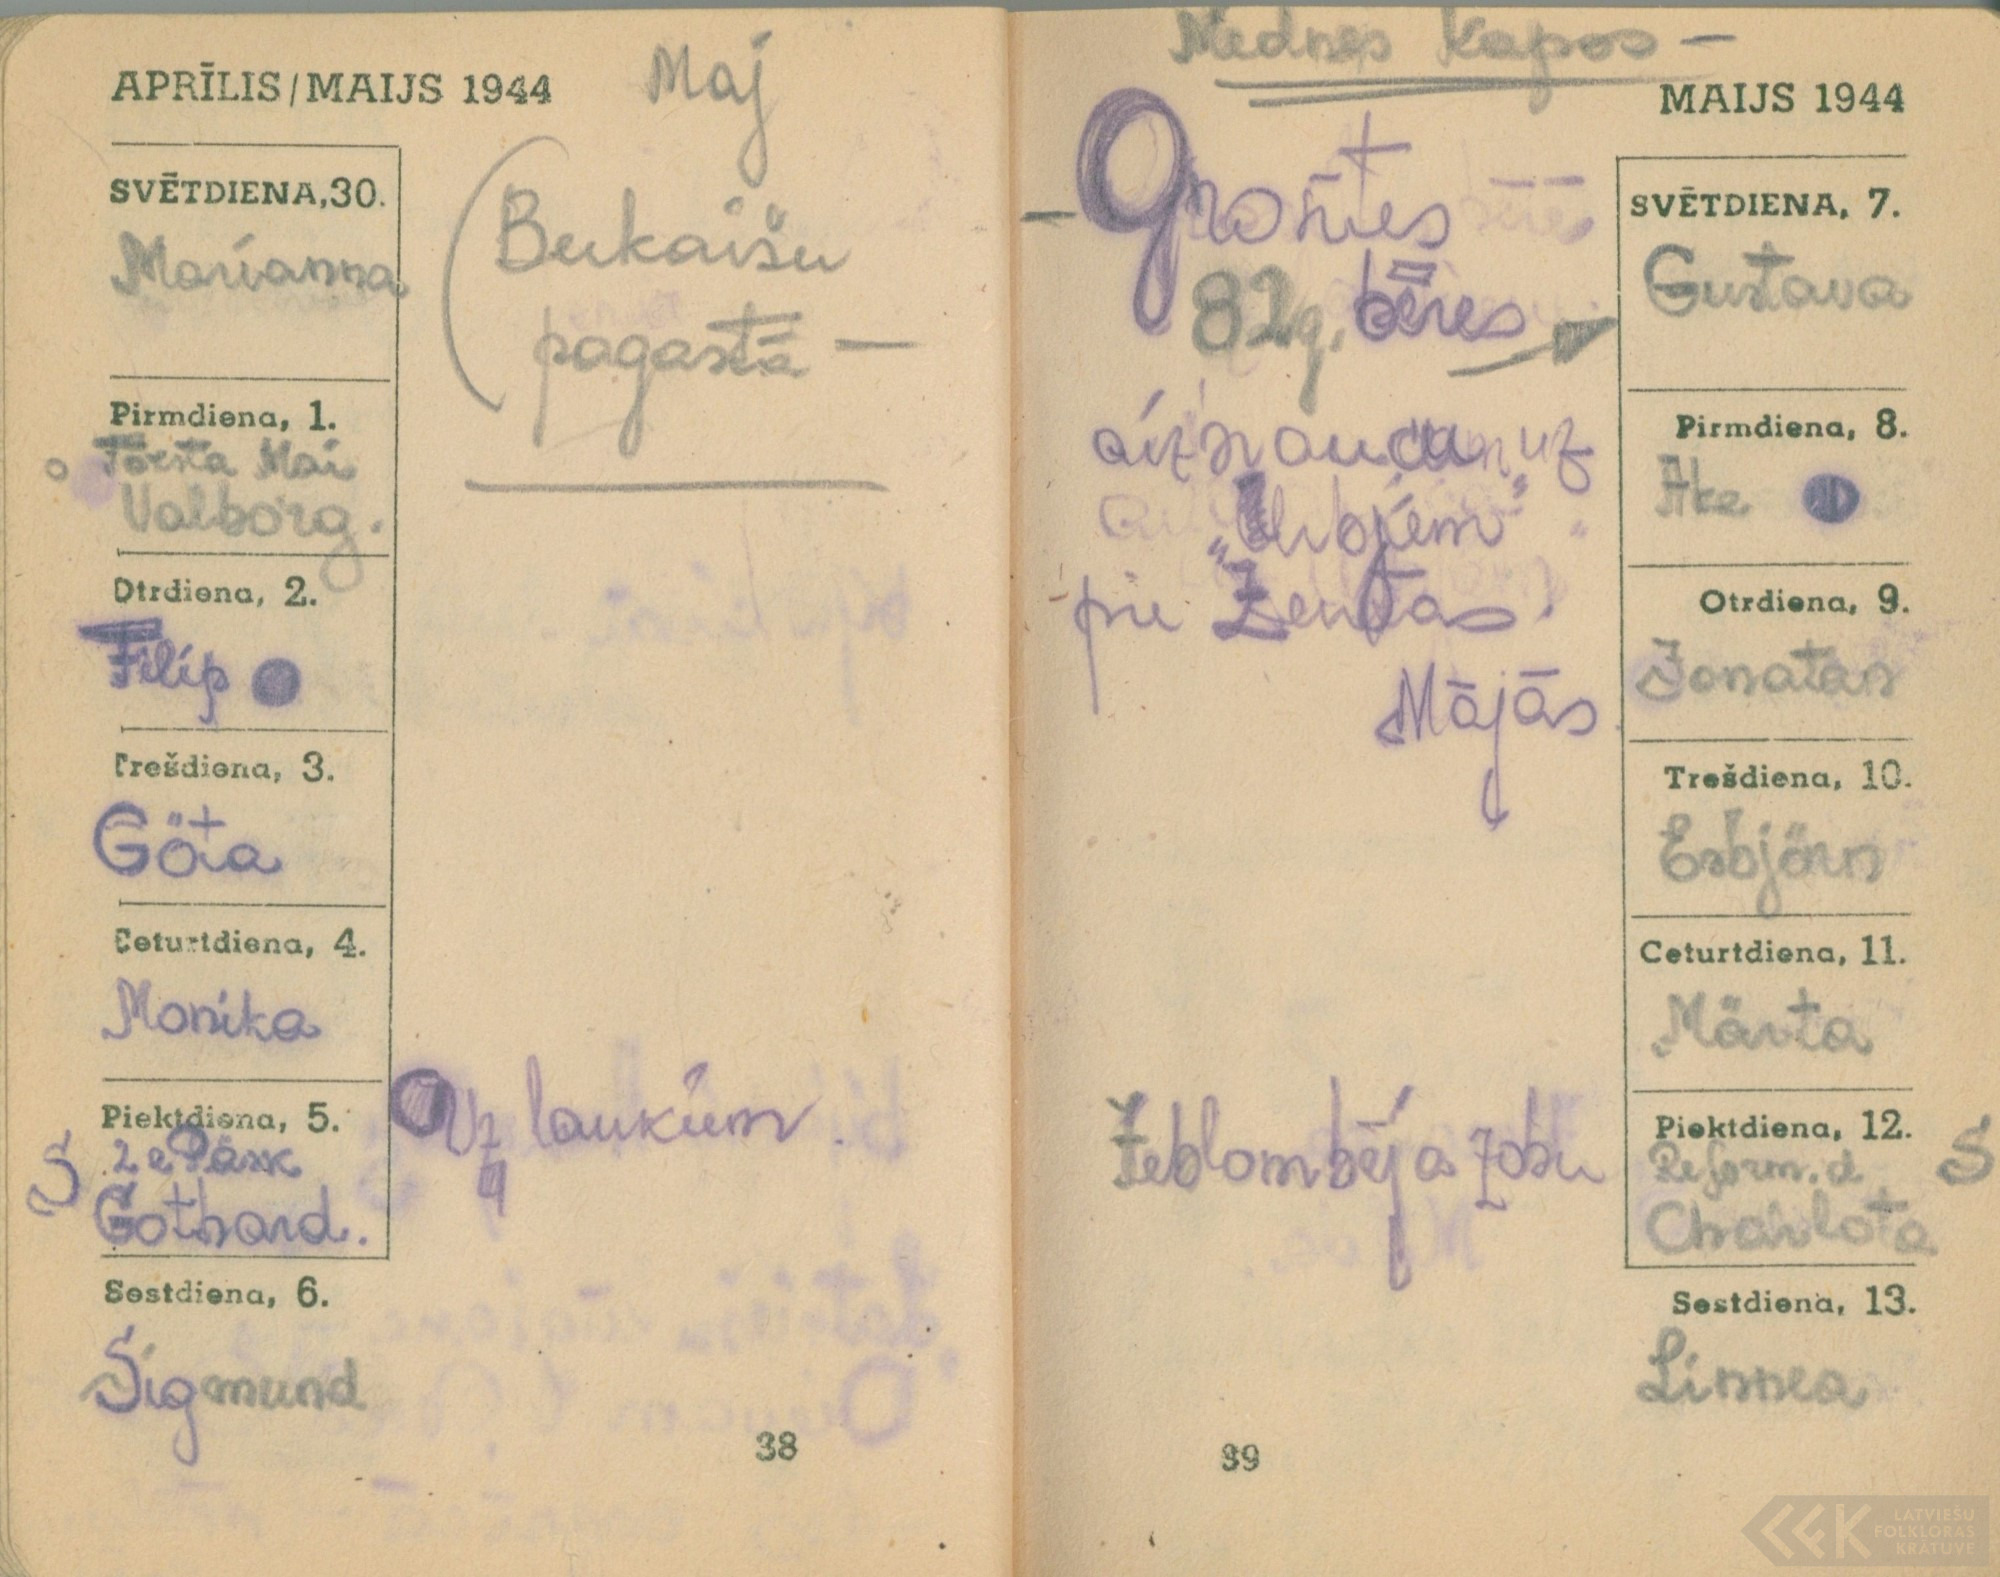 APRĪLIS/MAIJS 1944
Maj
SVĒTDIENA, 30.
Marianna
(Bukaišu
pagastā —
Pirmdiena, 1.
Första Mai
Valborg.
Otrdiena, 2.
Filip
Trešdiena, 3.
Göta
Ceturtdiena, 4.
Monika
Piektdiena, 5.
Uz laukiem.
S
Gothard.
Sestdiena, 6.
Sigmund
38
Mednes Kapos —
MAIJS 1944
SVĒTDIENA, 7.
Gustava
82g. bēres
uz
pie Zentas.
Mājās
Pirmdiena, 8.
Åke
Otrdiena, 9.
Jonatan
Trešdiena, 10.
Esbjörn
Ceturtdiena, 11.
Märta
Piektdiena, 12.
Reform. d
S
Charlota
zobu
Sestdiena, 13.
Linnea
39
LATVIEŠU
FOLKLORAS
KRĀTUVE